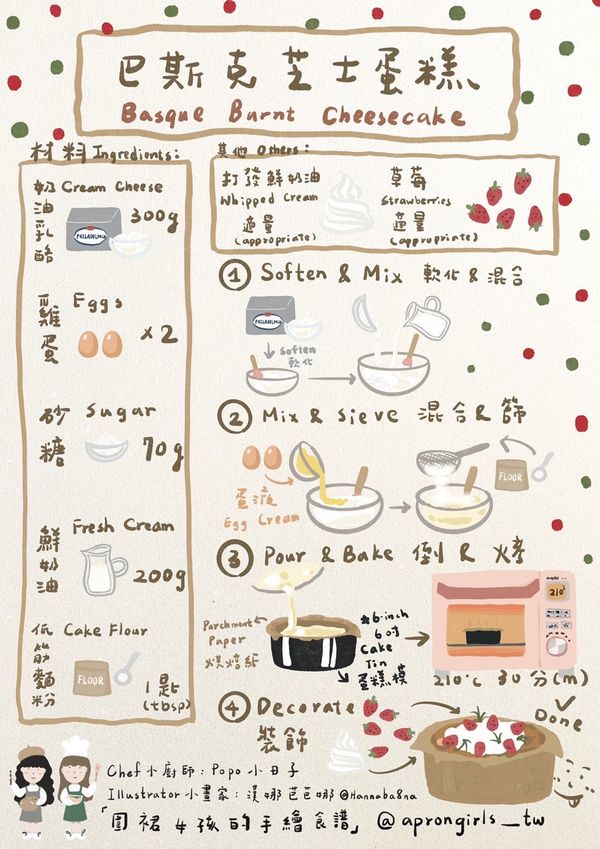 巴斯克芝士蛋糕
Basque Burnt Cheesecake
材料 Ingredients:
奶油乳酪 Cream Cheese
PHILADELPHIA
300g
雞蛋 Eggs
x2
砂糖 Sugar
70g
鮮奶油 Fresh Cream
200g
低筋麵粉 Cake Flour
FLOUR
1匙
(tbsp)
其他 Others:
打發鮮奶油
Whipped Cream
適量
(appropriate)
草莓
Strawberries
適量
(appropriate)
① Soften & Mix 軟化 & 混合
PHILADELPHIA
Soften
軟化
② Mix & Sieve 混合 & 篩
蛋液
Egg Cream
FLOUR
③ Pour & Bake 倒 & 烤
Parchment
Paper
烘烤紙
*6-inch
6吋
Cake
Tin
蛋糕模
210°
210°C 30分(m)
④ Decorate
裝飾
Done
Chef 小廚師:Popo 小日子
Illustrator 小畫家:漢娜芭芭娜 @Hannaba8na
「圍裙女孩的手繪食譜」 @aprongirls_tw